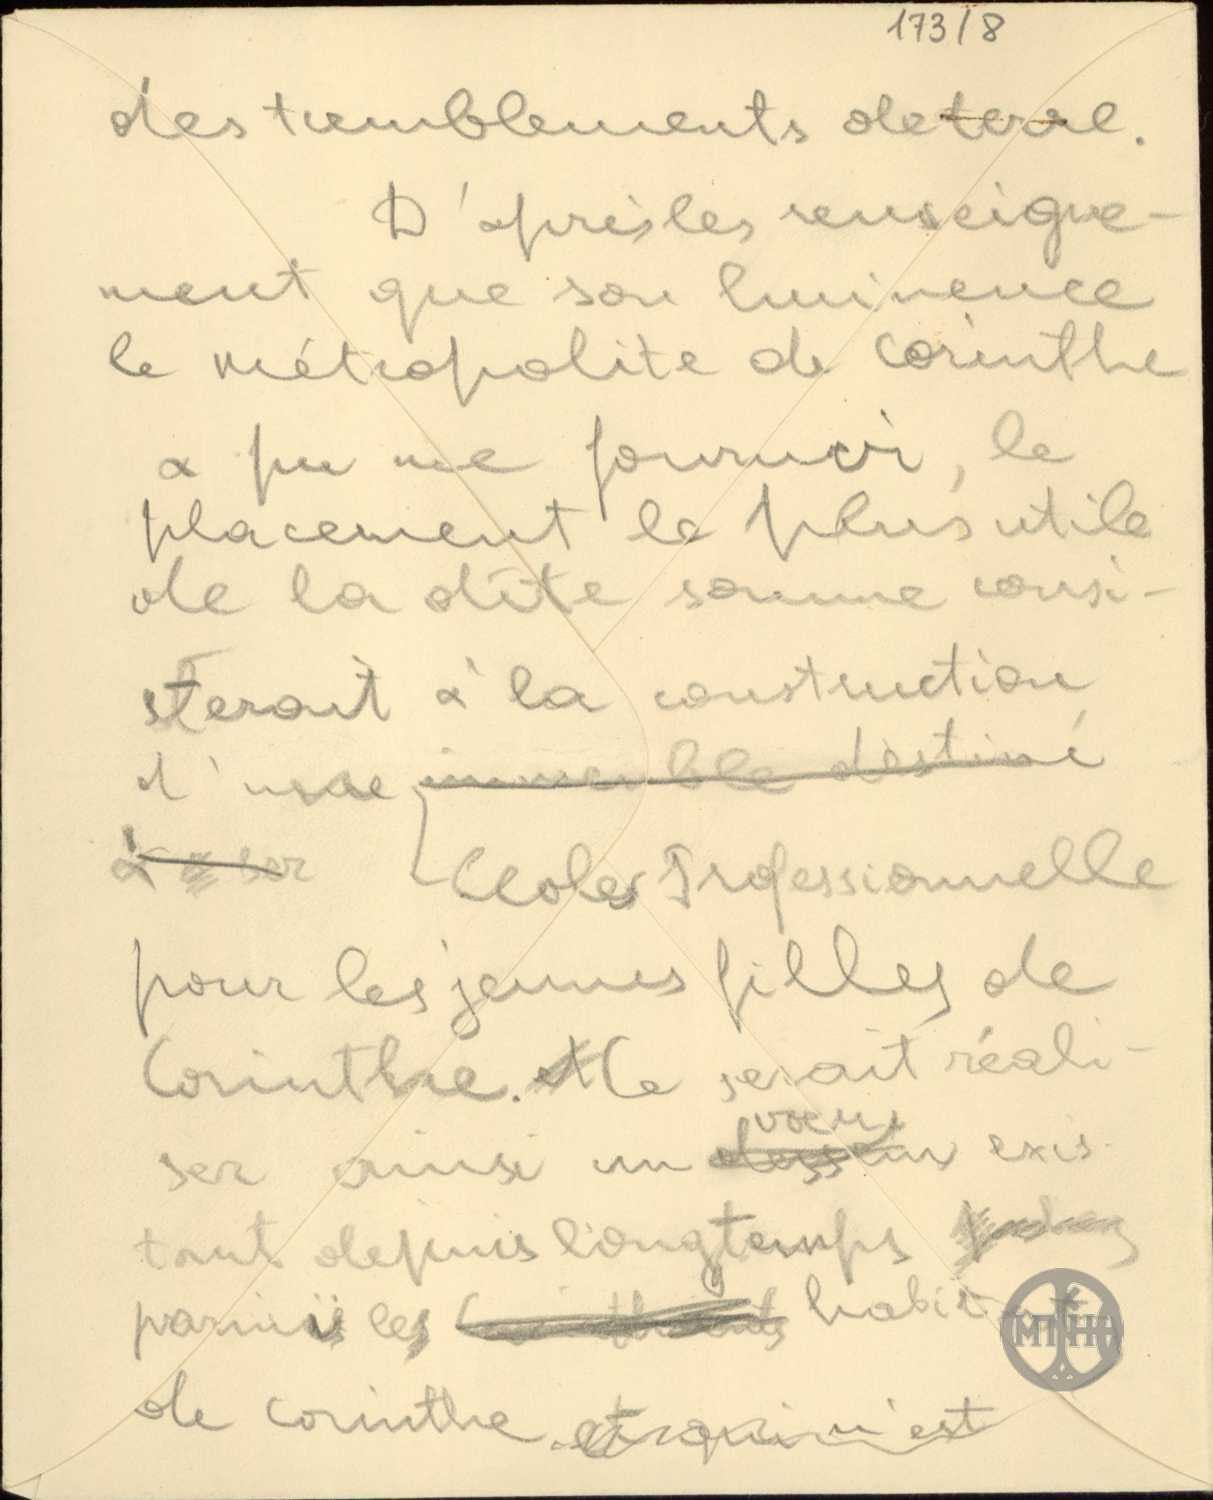 173/8
des tremblements de terre.
D'après les renseigne-
ment que son Eminence
le métropolite de Corinthe
a pu me fournir, le
placement le plus utile
de la dîte somme consi-
sterait à la construction
d'une immeuble destiné
à
Ecole Professionnelle
pour les jeunes filles de
Corinthe. Ce serait réali-
voeux
ser ainsi un dessein exis-
tant depuis longtemps
parmi les habit
de Corinthe et qui n'est
ΜΠΗ